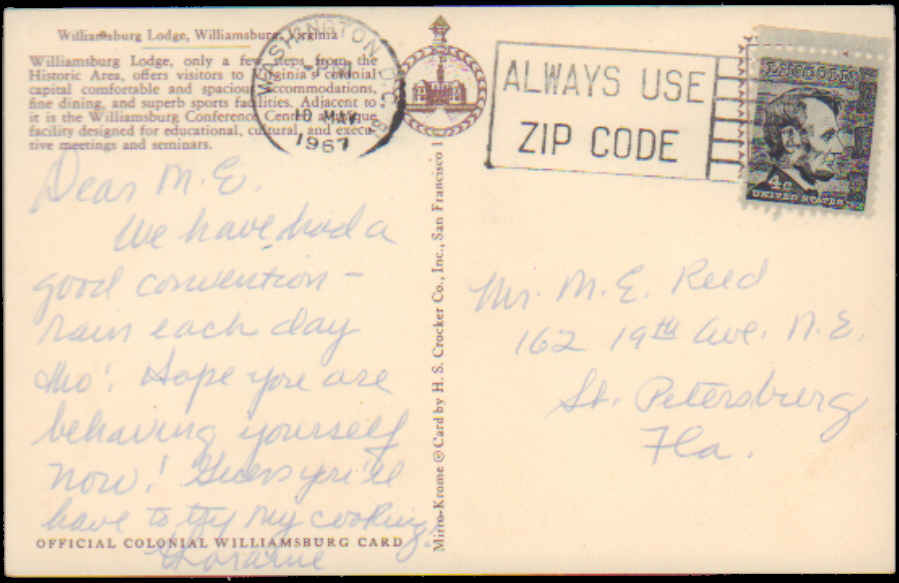 Williamsburg Lodge, Williamsburg, Virginia
Williamsburg Lodge, only a few steps from the
Historic Area, offers visitors to Virginia's colonial
capital comfortable and spacious accommodations,
fine dining, and superb sports facilities. Adjacent to
it is the Williamsburg Conference Center, a unique
facility designed for educational, cultural, and execu-
tive meetings and seminars.
Dear M.E.
We have had a
good convention -
rain each day
tho'. Hope you are
behaving yourself
now! Guess you'll
have to try my cooking.
Loraine
OFFICIAL COLONIAL WILLIAMSBURG CARD
Mirro-Krome ® Card by H. S. Crocker Co., Inc., San Francisco 1
WASHINGTON, D.C.
PM
10 MAY
1967
ALWAYS USE
ZIP CODE
LINCOLN
4c
UNITED STATES
Mr. M. E. Reed
162 19th Ave. N.E.
St. Petersburg
Fla.